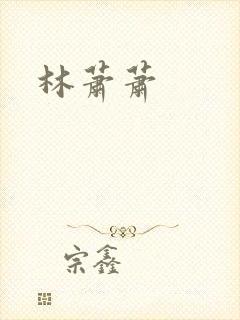 林萧萧
宗鑫